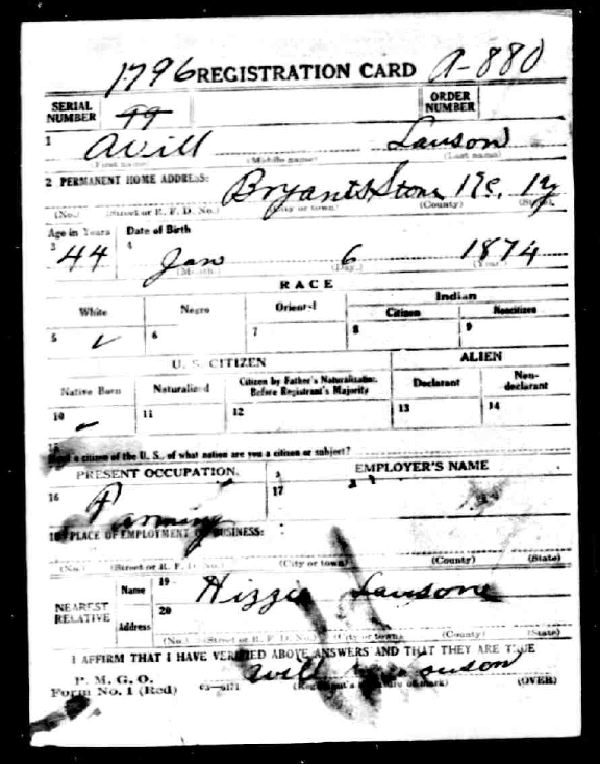 1796 REGISTRATION CARD A-880
SERIAL NUMBER 99 ORDER NUMBER
1 Avill Lawson
(First name) (Middle name) (Last name)
2 PERMANENT HOME ADDRESS: Bryants Store Ky
(No.) (Street or R. F. D. No.) (City or town) (County) (State)
Age in Years Date of Birth
3 44 4 Jan 6 1874
(Month) (Day) (Year)
RACE
White Negro Oriental Indian
Citizen Noncitizen
5 ✓ 6 7 8 9
U. S. CITIZEN ALIEN
Native Born Naturalized Citizen by Father's Naturalization Before Registrant's Majority Declarant Non-declarant
10 ✓ 11 12 13 14
15
If not a citizen of the U. S., of what nation are you a citizen or subject?
PRESENT OCCUPATION EMPLOYER'S NAME
16 Farming 17
18 PLACE OF EMPLOYMENT OR BUSINESS:
(No.) (Street or R. F. D. No.) (City or town) (County) (State)
NEAREST RELATIVE Name 19 Lawson
Address 20
(No.) (Street or R. F. D. No.) (City or town) (County) (State)
I AFFIRM THAT I HAVE VERIFIED ABOVE ANSWERS AND THAT THEY ARE TRUE
P. M. G. O.
Form No. 1 (Red) 03—6171 (Registrant's signature or mark) (OVER)